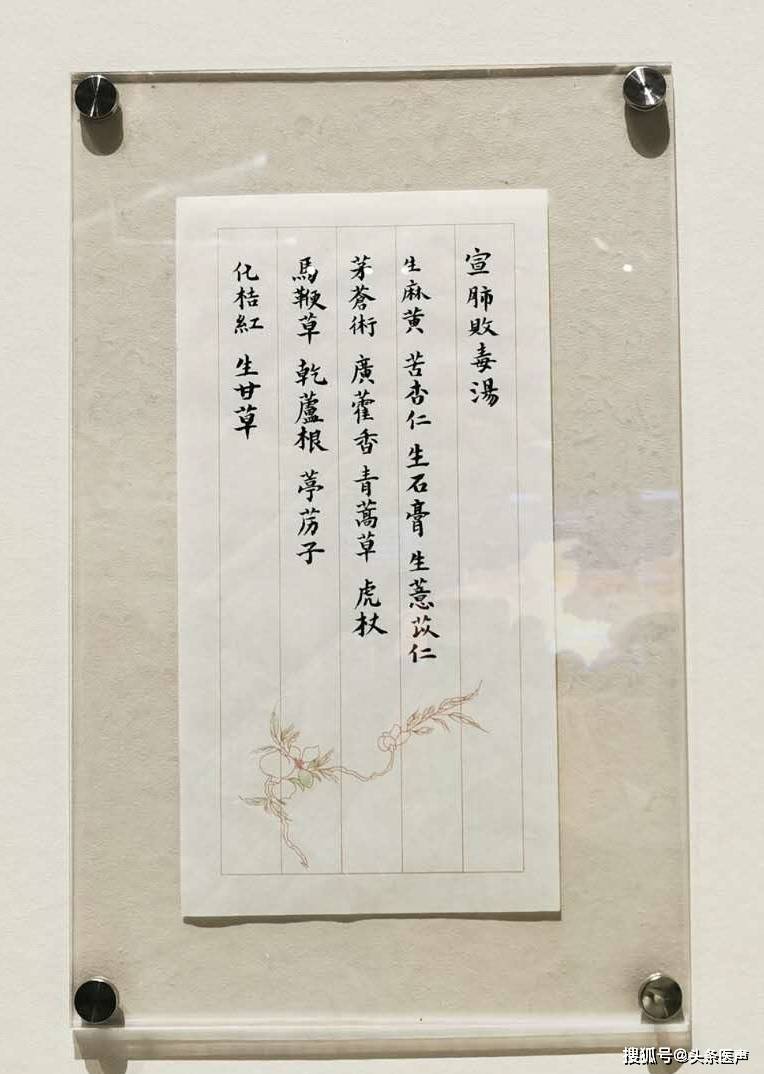 宣肺敗毒湯
生麻黄 苦杏仁 生石膏 生薏苡仁
茅蒼術 廣藿香 青蒿草 虎杖
馬鞭草 乾蘆根 葶苈子
化桔紅 生甘草
搜狐号@头条医声